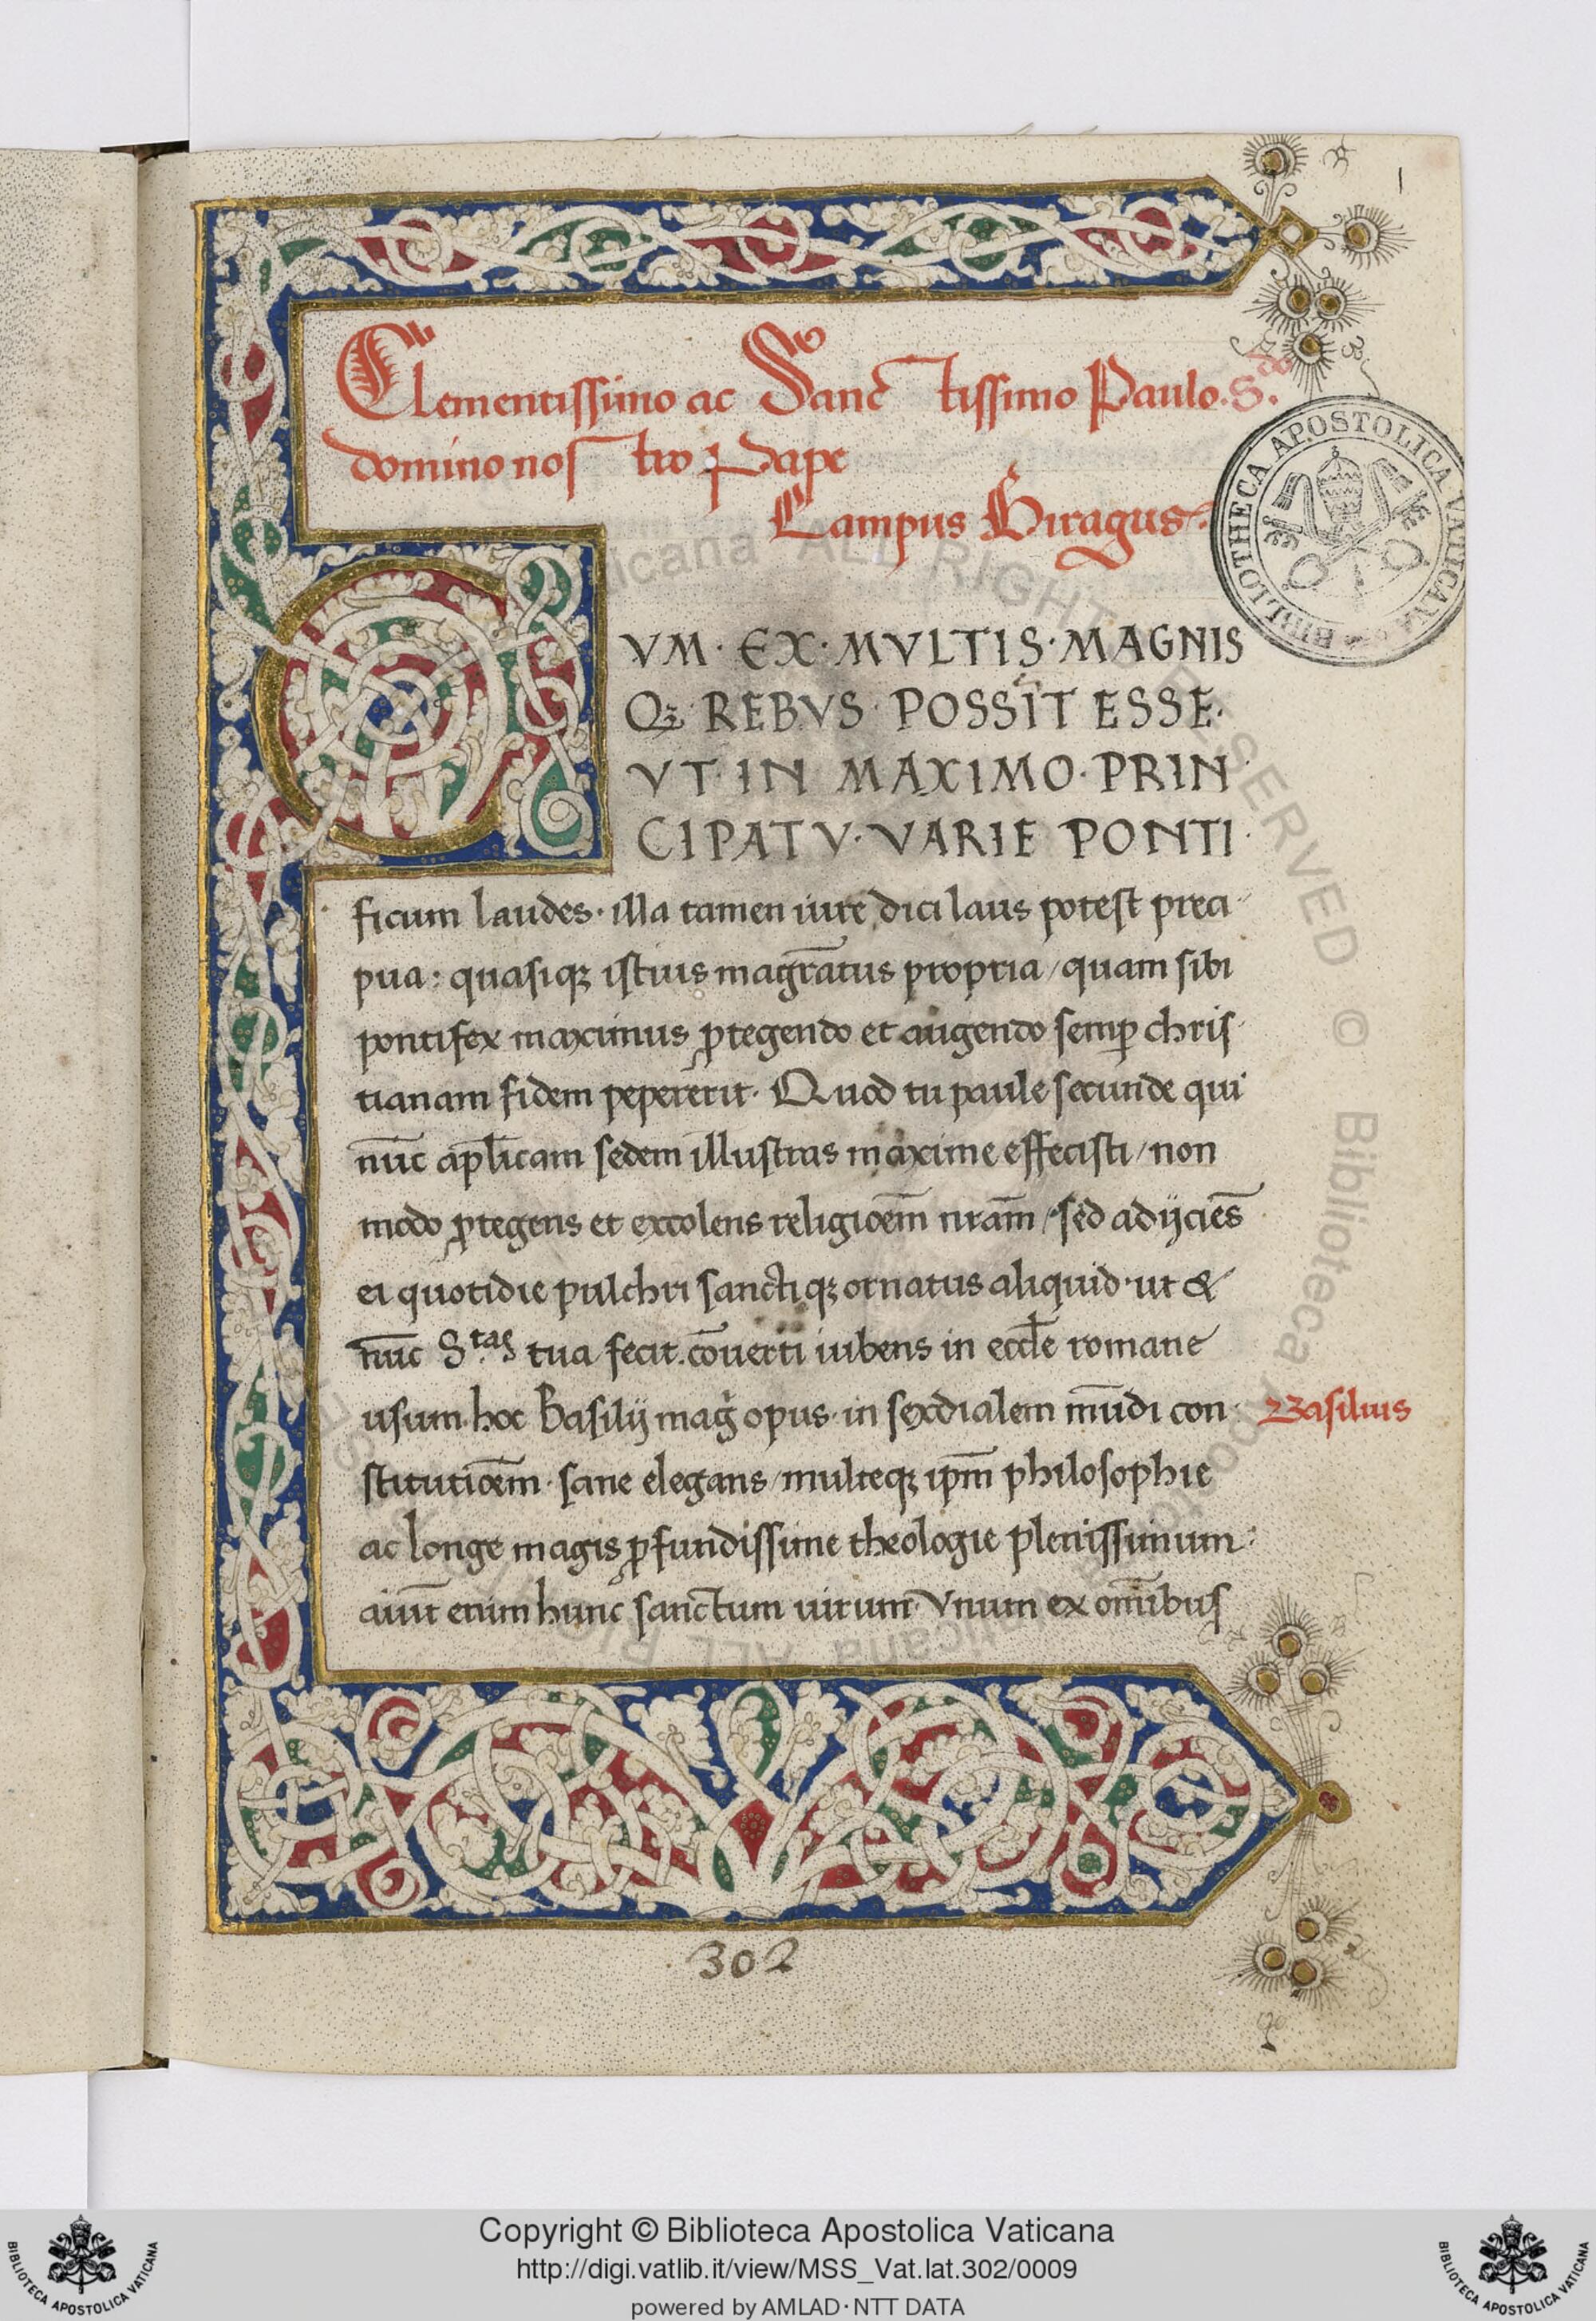 1
Clementissimo ac Sanctissimo Paulo .S.do
domino nostro Pape
Lampus Biragus.
CVM · EX · MVLTIS · MAGNIS
Qꝫ REBVS POSSIT ESSE·
VT · IN MAXIMO · PRIN
CIPATV · VARIE PONTI
ficum laudes · illa tamen iure dici laus potest preci
pua : quasiqꝫ istius magr̄atus propria / quam sibi
pontifex maximus ꝓtegendo et augendo semꝑ chris
tianam fidem pepererit · Quod tu paule secunde qui
nūc apl̄icam sedem illustras maxime effecisti / non
modo ꝓtegens et excolens religiōem nr̄am / sed adijciēs
ei quotidie pulchri sanctiqꝫ ornatus aliquid · ut &
nūc S.tas tua fecit. cōuerti iubens in eccl̄e romane
usum · hoc Basilij mag̃ opus · in sexdialem mūdi con
Basilius
stitutiōem · sane elegans / multeqꝫ ipm̄ philosophie
ac longe magis ꝓfundissime theologie plenissimum ·
aiūt enim hunc sanctum uirum Vnum ex om̄ibus
302
BIBLIOTHECA APOSTOLICA VATICANA
Copyright © Biblioteca Apostolica Vaticana
http://digi.vatlib.it/view/MSS_Vat.lat.302/0009
powered by AMLAD · NTT DATA
BIBLIOTECA APOSTOLICA VATICANA
BIBLIOTECA APOSTOLICA VATICANA